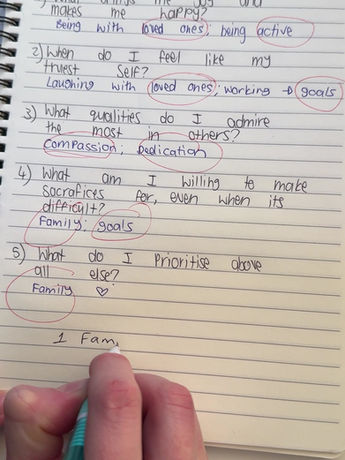 makes me happy?
Being with loved ones; being active
2) When do I feel like my
truest self?
Laughing with loved ones; working → goals
3) What qualities do I admire
the most in others?
Compassion; Dedication
4) What am I willing to make
socrafices for, even when its
difficult?
Family; goals
5) What do I Prioritise above
all else?
Family ♡
1 Fam